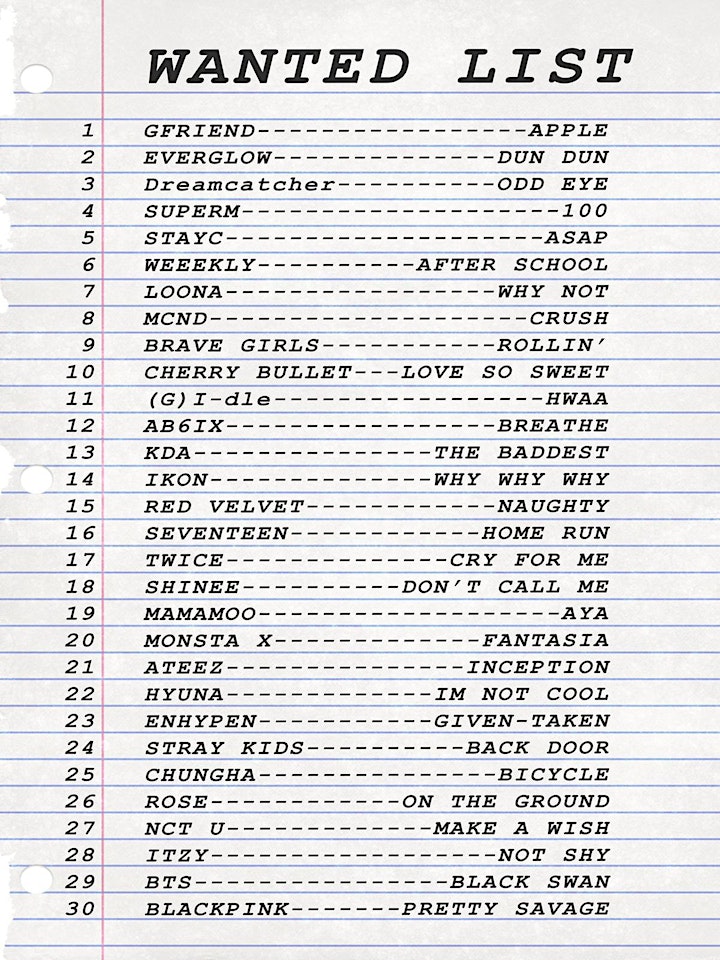 WANTED LIST
1 GFRIEND-----------------APPLE
2 EVERGLOW--------------DUN DUN
3 Dreamcatcher----------ODD EYE
4 SUPERM--------------------100
5 STAYC--------------------ASAP
6 WEEEKLY----------AFTER SCHOOL
7 LOONA-----------------WHY NOT
8 MCND--------------------CRUSH
9 BRAVE GIRLS-----------ROLLIN'
10 CHERRY BULLET---LOVE SO SWEET
11 (G)I-dle-----------------HWAA
12 AB6IX-----------------BREATHE
13 KDA---------------THE BADDEST
14 IKON--------------WHY WHY WHY
15 RED VELVET------------NAUGHTY
16 SEVENTEEN------------HOME RUN
17 TWICE--------------CRY FOR ME
18 SHINEE----------DON'T CALL ME
19 MAMAMOO-------------------AYA
20 MONSTA X-------------FANTASIA
21 ATEEZ---------------INCEPTION
22 HYUNA-------------IM NOT COOL
23 ENHYPEN-----------GIVEN-TAKEN
24 STRAY KIDS----------BACK DOOR
25 CHUNGHA---------------BICYCLE
26 ROSE------------ON THE GROUND
27 NCT U-------------MAKE A WISH
28 ITZY------------------NOT SHY
29 BTS----------------BLACK SWAN
30 BLACKPINK-------PRETTY SAVAGE